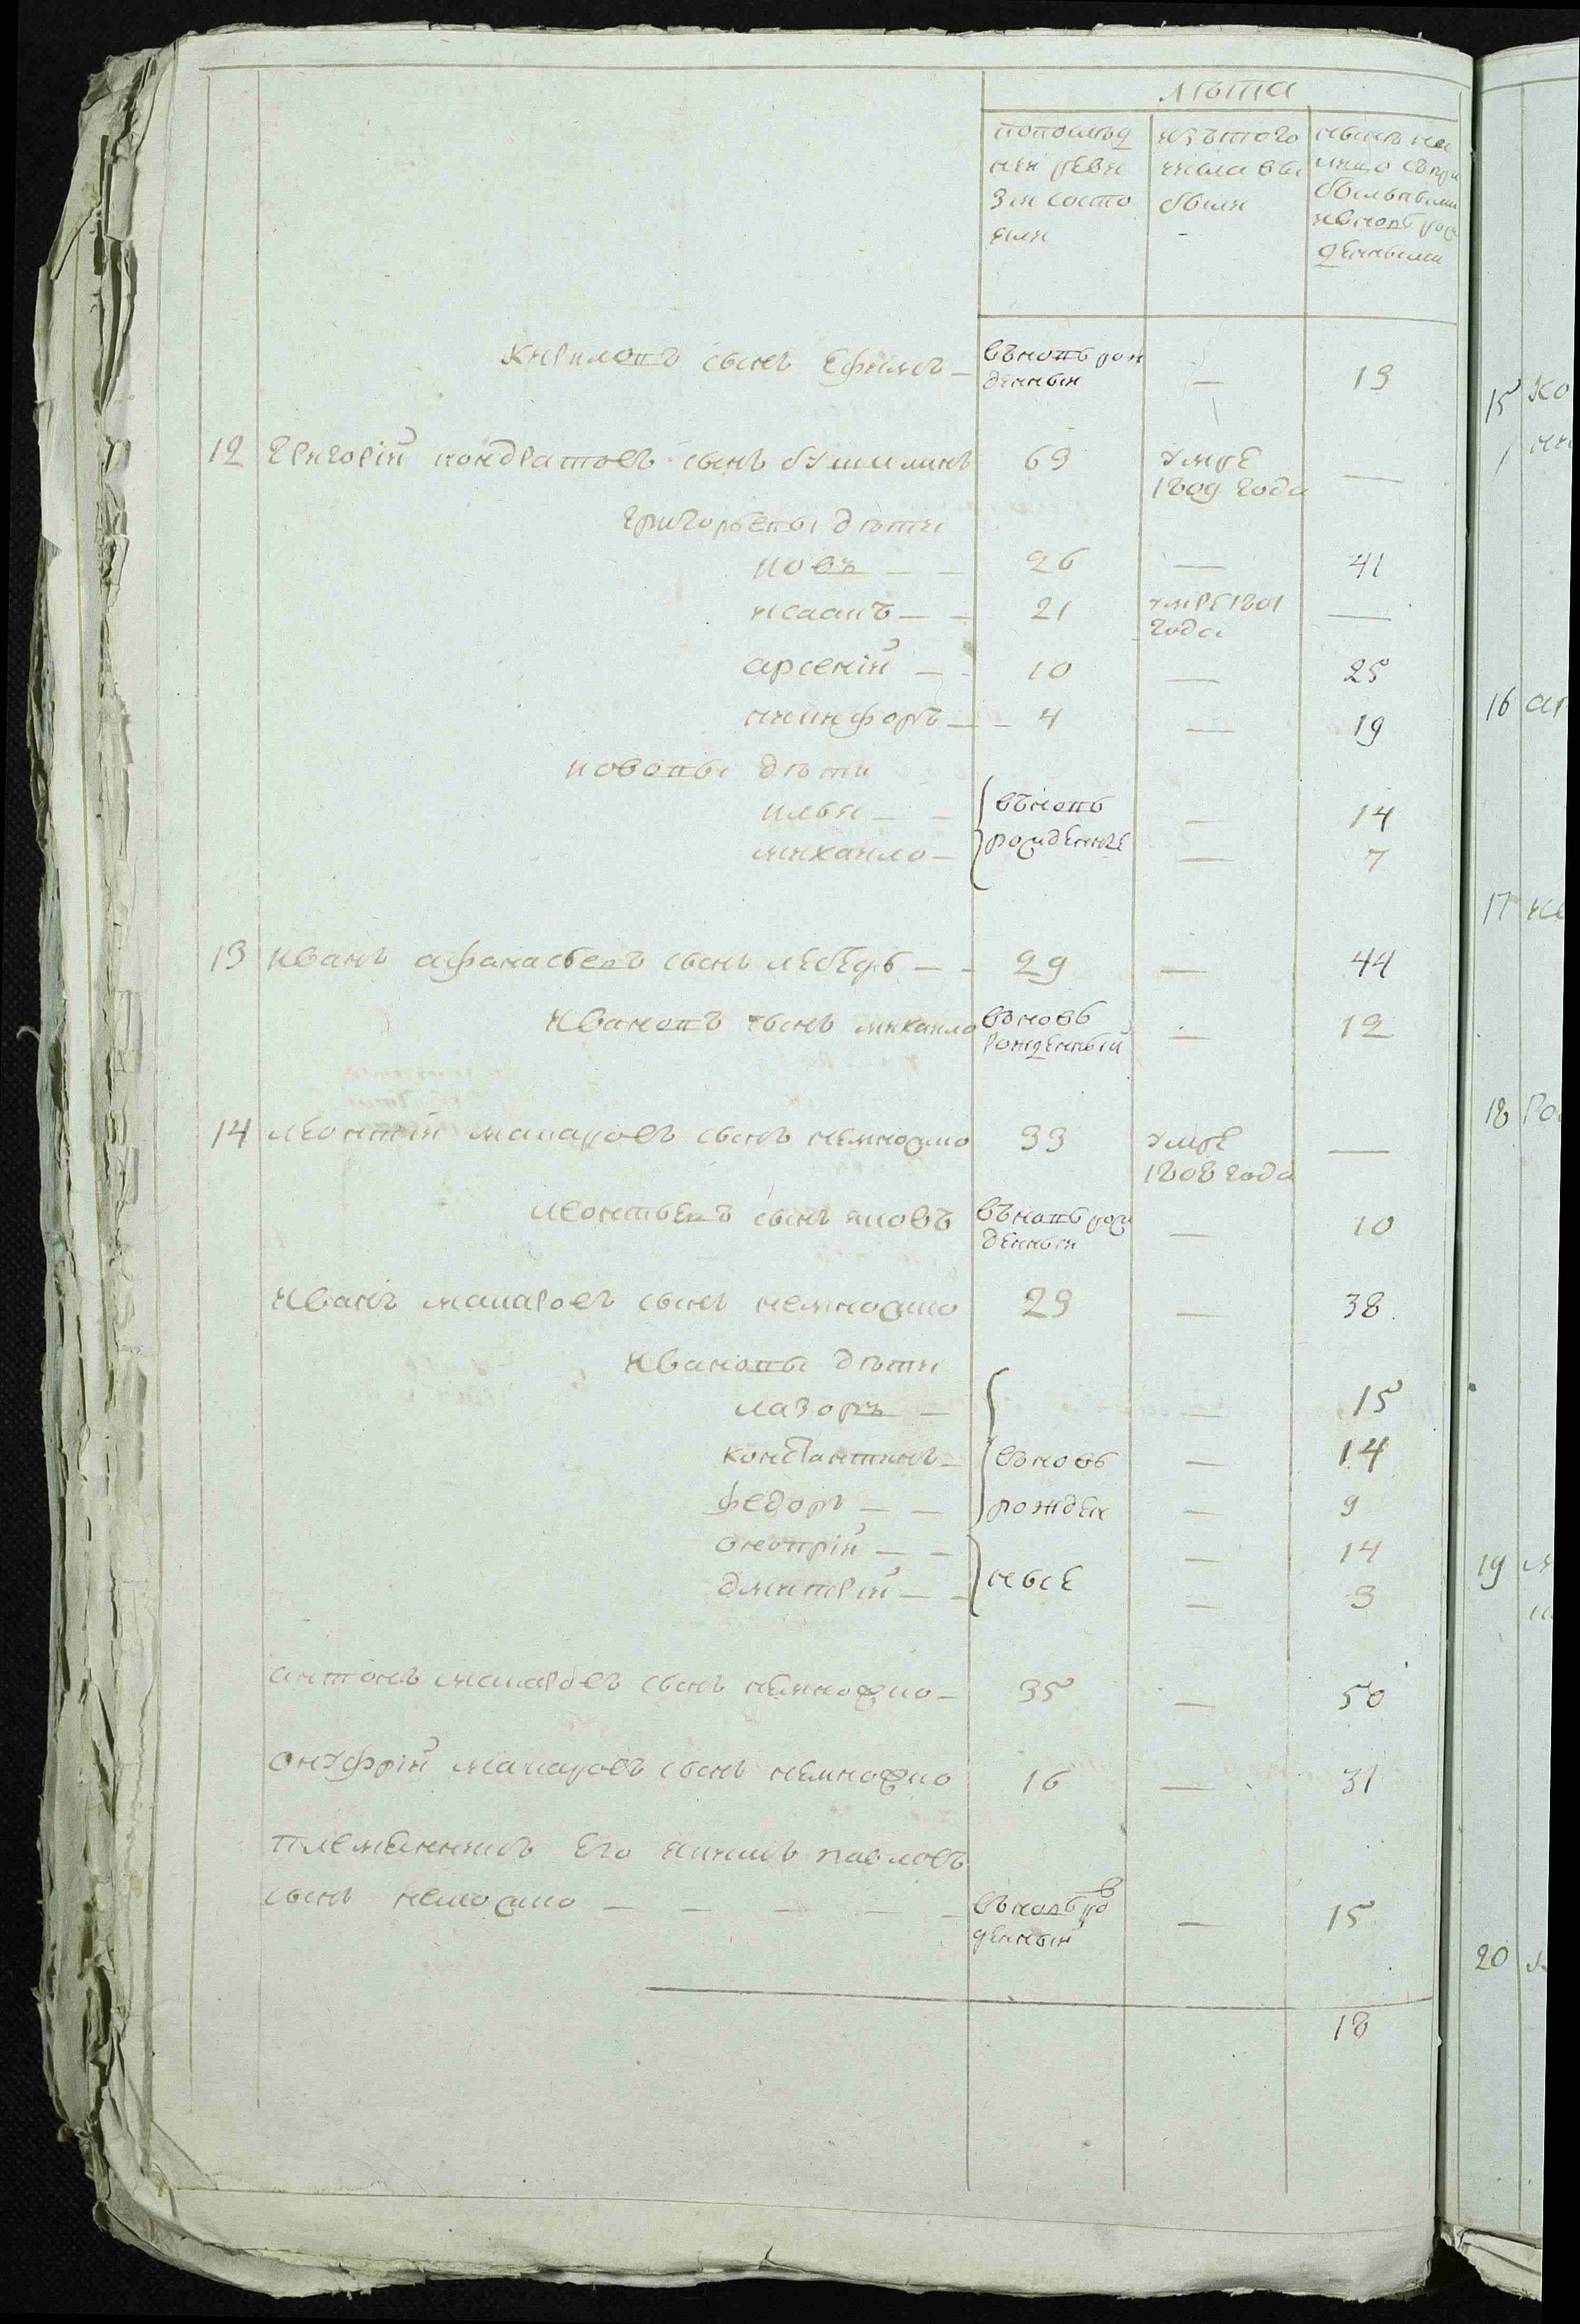 лѣта
попослѣд
ней реви
зіи состо
яли
изътого
числа вы
были
нынѣ на
лицо съпри
былными
ивновь рож
денными
Кириловъ сынъ Ефимъ — вьновь рож — 13
денныи
12 Григорій кондратовъ сынъ 69 умре —
1809 года
Григорьевы дѣти
иовъ — — 26 — 41
исаакъ — — 21 умре 1801 —
года
арсеній — — 10 — 25
никифоръ — — 4 — 19
иововы дѣти
илья — — вьновь — 14
михаило — рожденне — 7
13 Иванъ афанасьевъ сынъ лебедь — — 29 — 44
Ивановъ сынъ михаило вьновь — 12
рожденный
14 леонтій макаровъ сынъ немножко 33 умре —
1808 года
леонтьевъ сынъ яковъ вьновь рож — 10
денныи
Иванъ макаровъ сынъ немножко 23 — 38
Ивановы дѣти
лазоръ — — 15
Константинъ — вьновь — 14
федоръ — — рожден — 9
онопрій — — — 14
дмитрій — — ные — 3
антонъ макаровъ сынъ немножко — 35 — 50
онуфрій макаровъ сынъ немножко 16 — 31
племянникъ его якимъ павловъ
сынъ неможко — — — — — вьновь ро — 15
денный
18
15 Ко
16
17
18
19
20